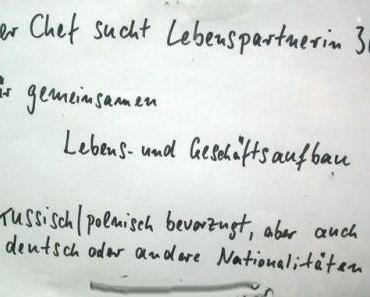 er Chef sucht Lebenspartnerin 3
gemeinsamen
Lebens- und Geschäftsaufbau
russisch/polnisch bevorzugt, aber auch
deutsch oder andere Nationalitäten